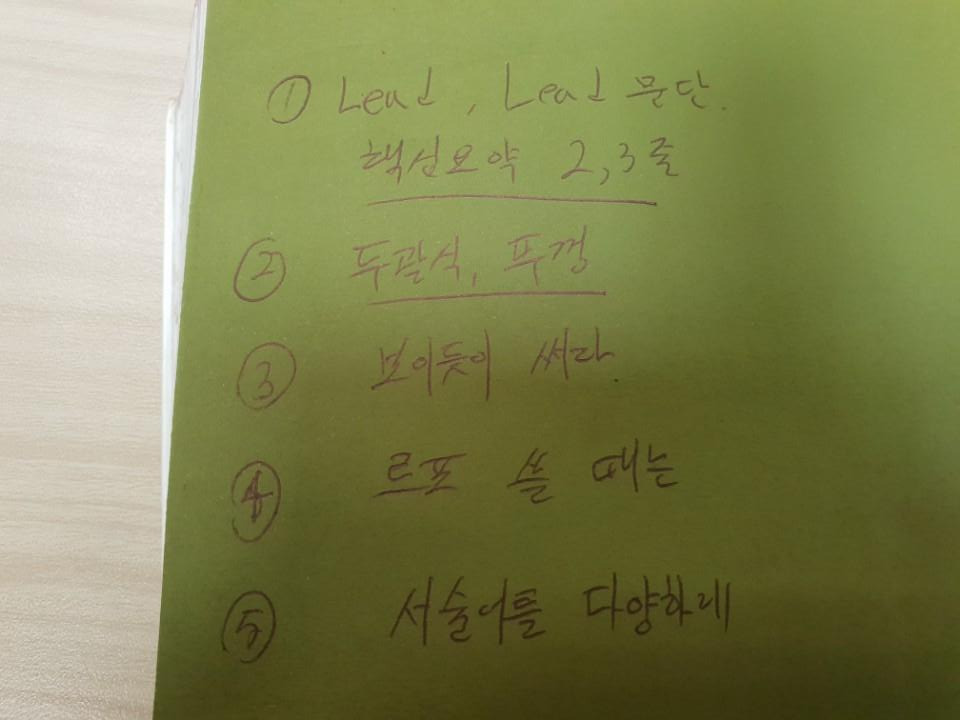 ① Lead, Lead 문단.
핵심요약 2,3줄
② 두괄식, 뚜껑
③ 보이듯이 써라.
④ 르포 쓸 때는
⑤ 서술어를 다양하게